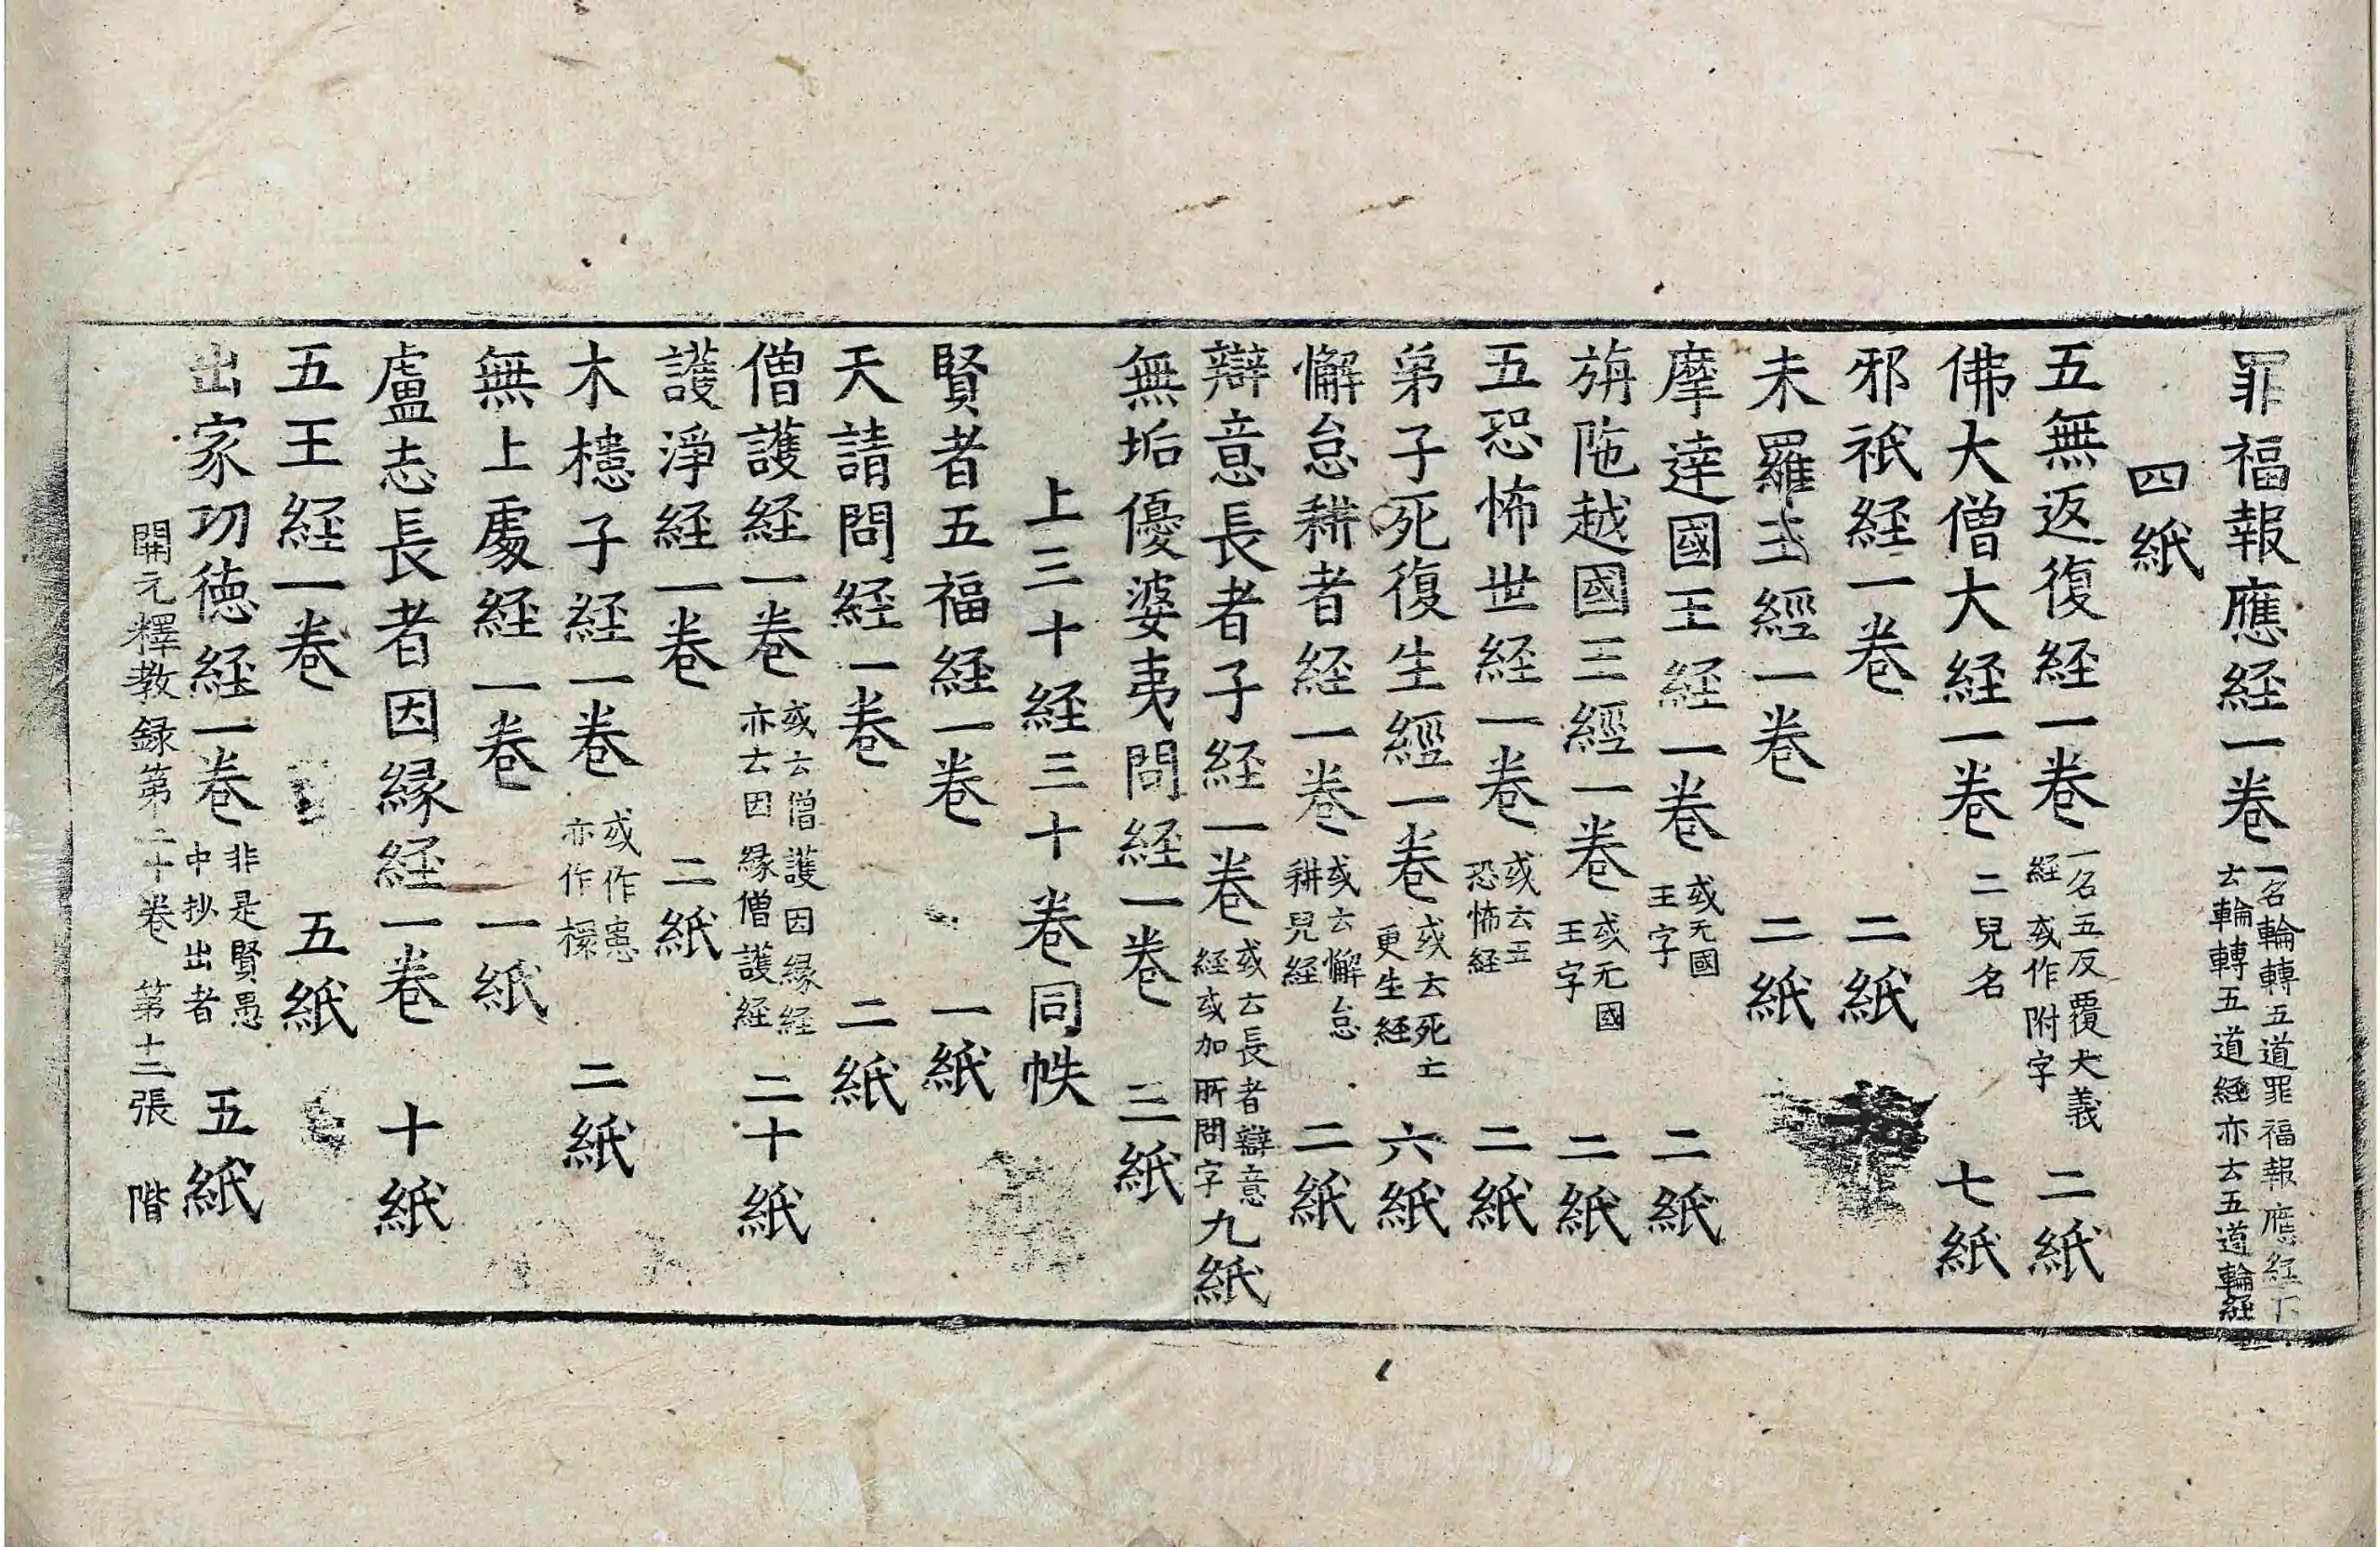 罪福報應経一卷一名輪轉五道罪福報應経下云輪轉五道経亦云五道輪経
四紙
五無返復経一卷一名五反覆大義経或作附字二紙
佛大僧大経一卷二兒名七紙
邪祇経一卷二紙
末羅王經一卷二紙
摩達國王経一卷或无國王字二紙
旃陁越國王經一卷或无國王字二紙
五恐怖世経一卷或云五恐怖経二紙
弟子死復生經一卷或云死亡更生経六紙
懈怠耕者経一卷或云懈怠耕兒経二紙
辯意長者子経一卷或云長者辯意経或加所問字九紙
無垢優婆夷問経一卷三紙
上三十経三十卷同帙
賢者五福経一卷一紙
天請問経一卷二紙
僧護経一卷或云僧護因縁経亦云因縁僧護経二十紙
護淨経一卷二紙
木槵子経一卷或作患亦作槵二紙
無上處経一卷一紙
盧志長者因縁経一卷十紙
五王経一卷五紙
出家功徳経一卷非是賢愚中抄出者五紙
開元釋教録第二十卷第十二張階